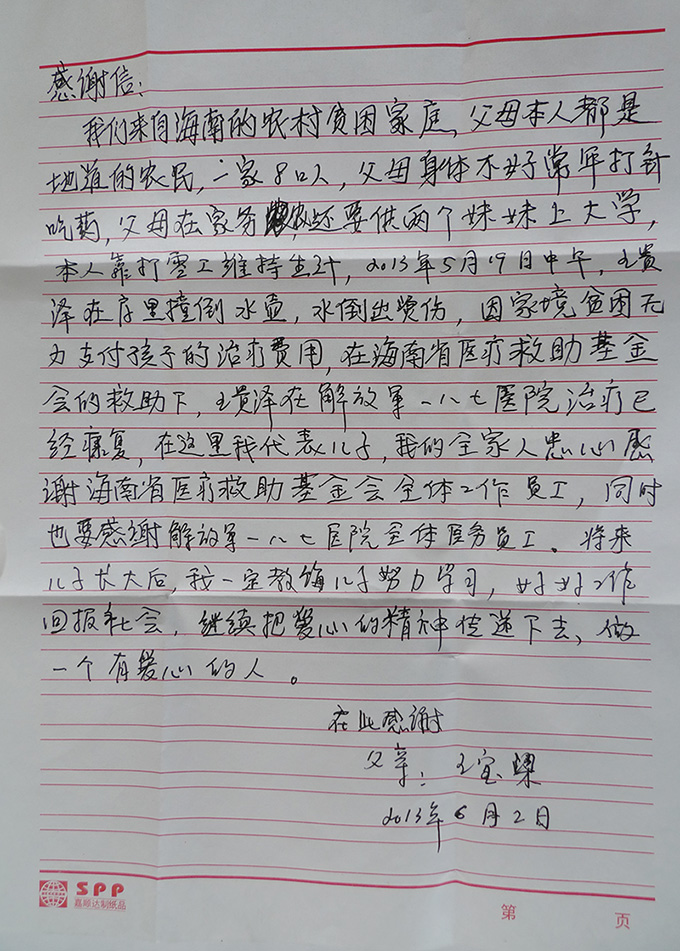 感谢信:
我们来自海南的农村贫困家庭,父母本人都是
地道的农民,一家8口人,父母身体不好常年打针
吃药,父母在家务农,还要供两个妹妹上大学,
本人靠打零工维持生计,2013年5月19日中午,王贵
泽在房里撞倒水壶,水倒出烫伤,因家境贫困无
力支付孩子的治疗费用,在海南省医疗救助基金
会的救助下,王贵泽在解放军一八七医院治疗已
经康复,在这里我代表儿子,我的全家人忠心感
谢海南省医疗救助基金会全体工作员工,同时
也要感谢解放军一八七医院全体医务员工。将来
儿子长大后,我一定教诲儿子努力学习,好好工作
回报社会,继续把爱心的精神传递下去,做
一个有爱心的人。
在此感谢
父亲:王宝
2013年6月2日
SPP
嘉顺达制纸品
第 页